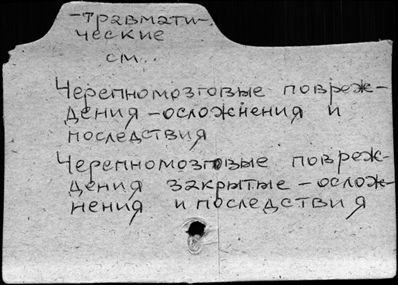 -травмати-
ческие
см..
Черепномозговые повреж-
дения - осложнения и
последствия
Черепномозговые повреж-
дения закрытые - ослож-
нения и последствия